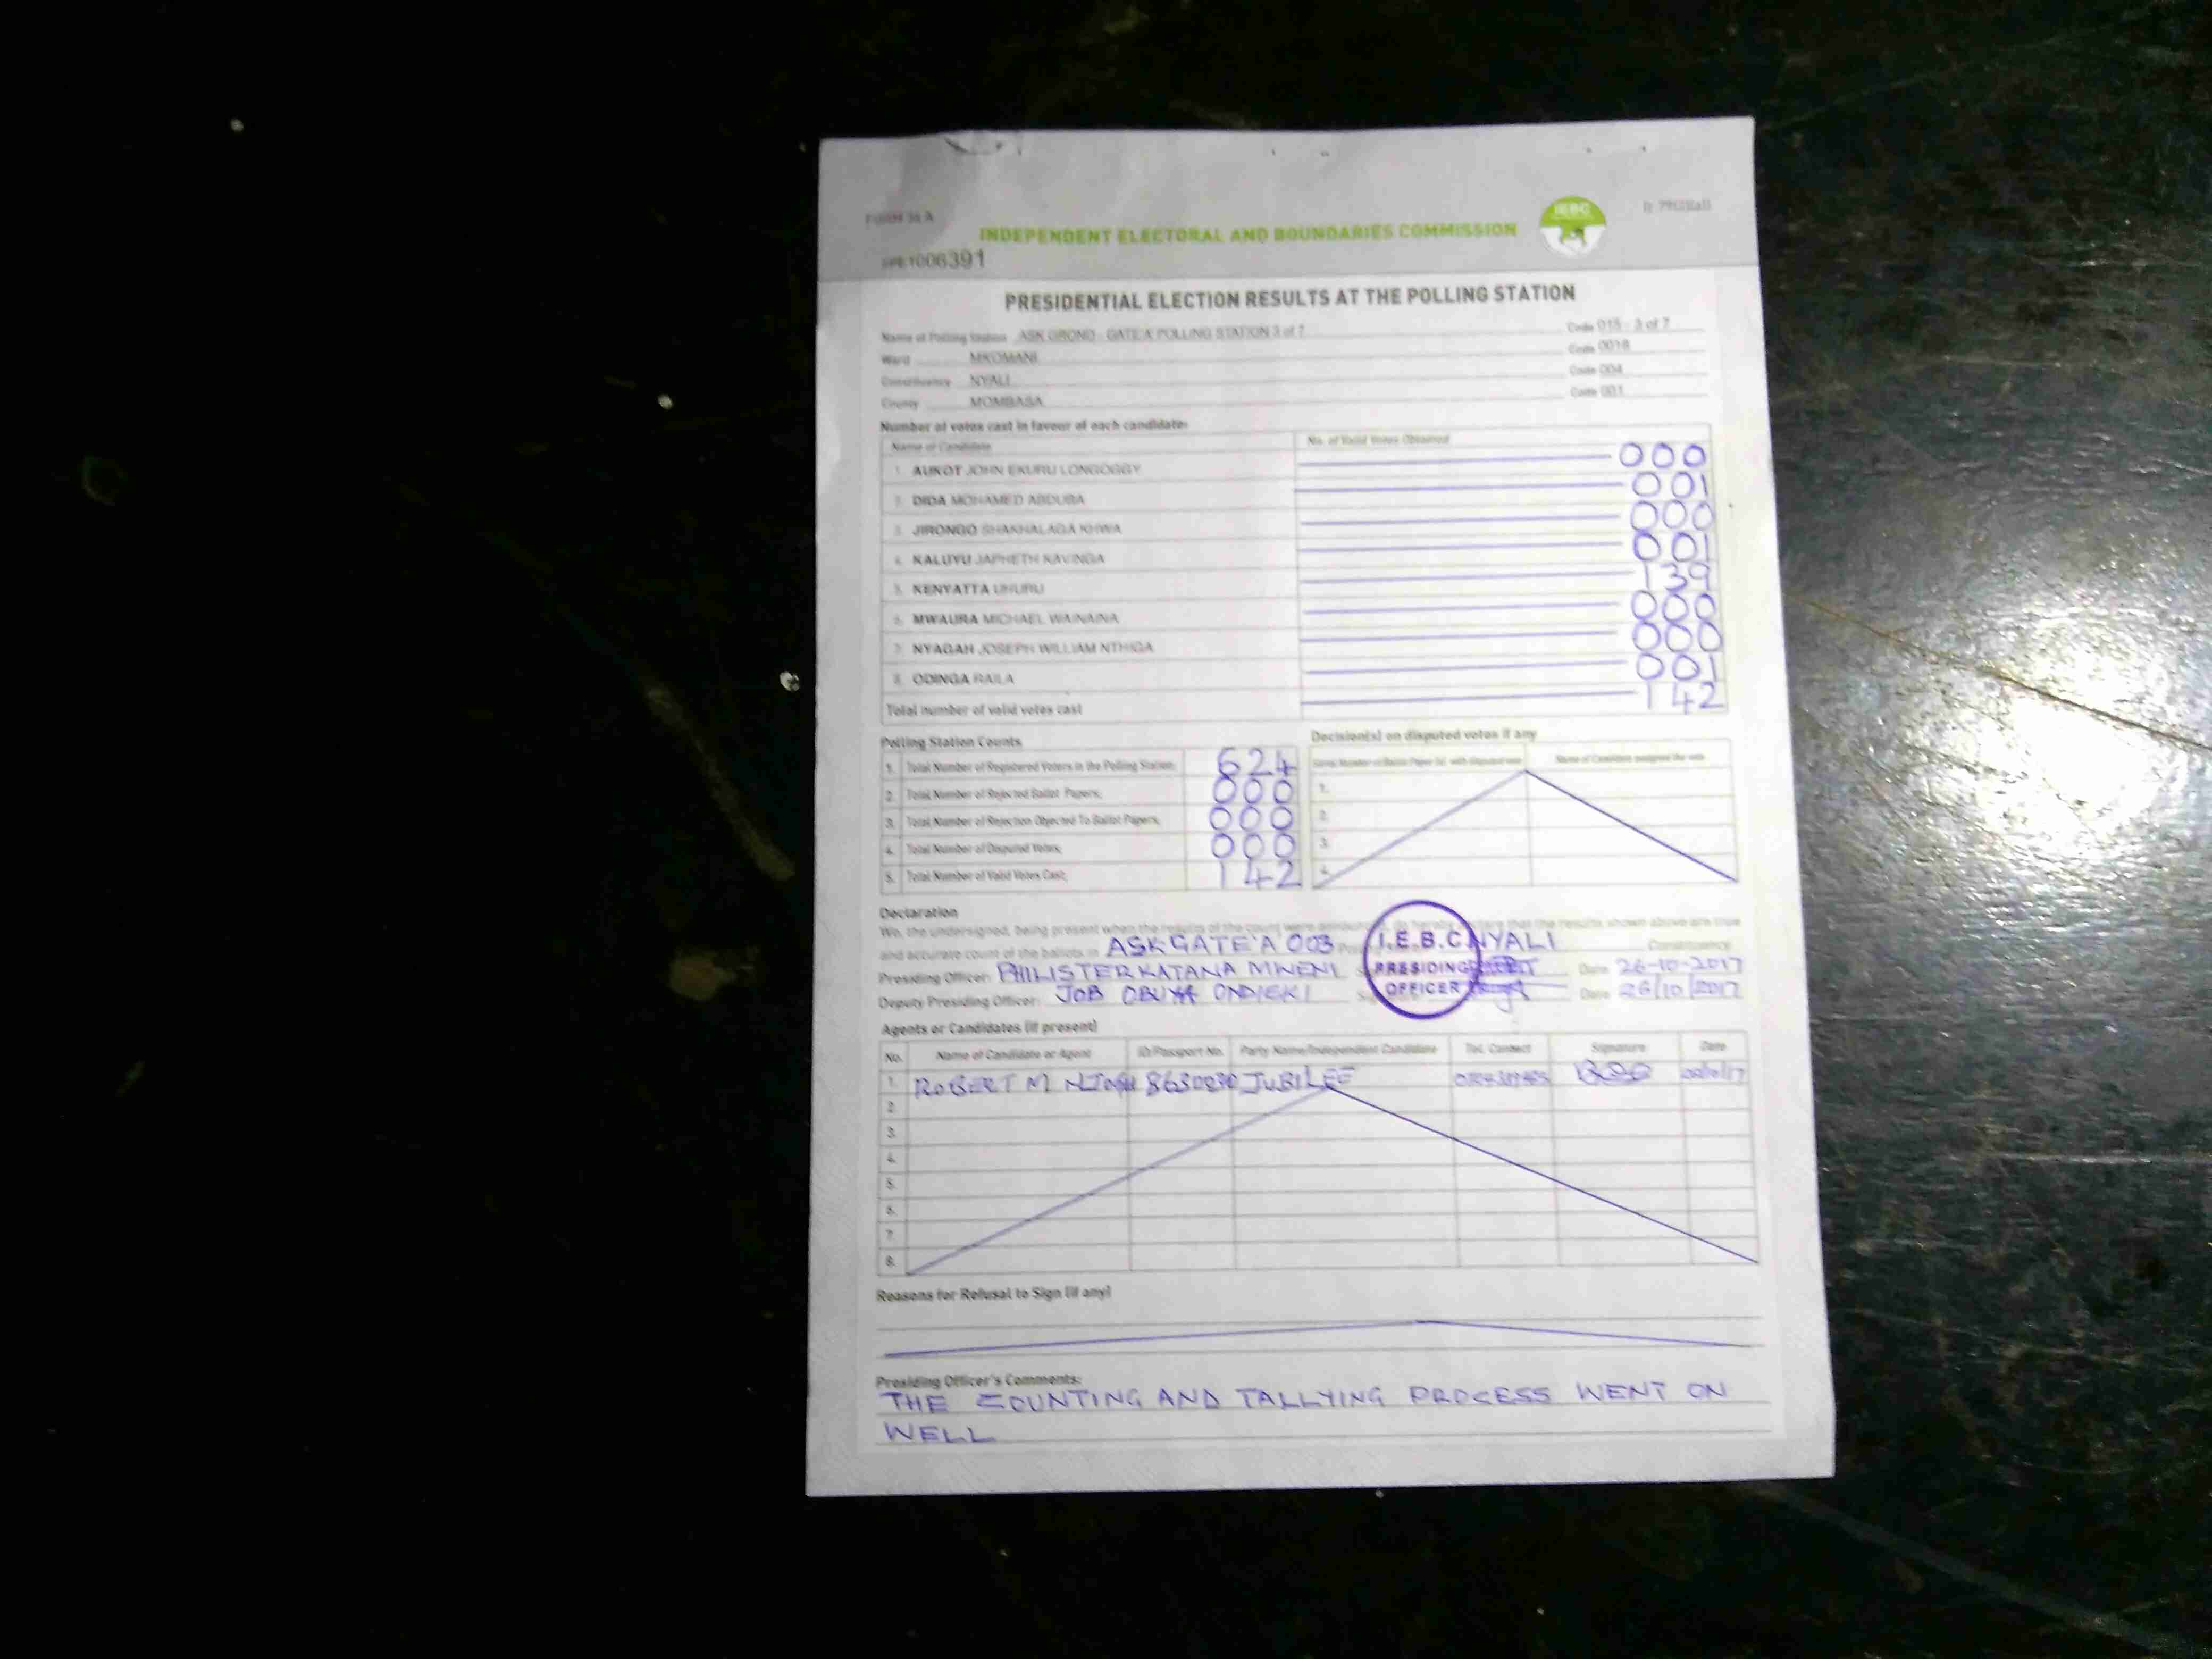 FORM 34 A
INDEPENDENT ELECTORAL AND BOUNDARIES COMMISSION
IEBC
1006391
PRESIDENTIAL ELECTION RESULTS AT THE POLLING STATION
Name of Polling Station ASK GROND - GATE A POLLING STATION 3 of 7 Code 015 - 3 of 7
Ward MKOMANI Code 0018
Constituency NYALI Code 004
County MOMBASA Code 001
Number of votes cast in favour of each candidate
Name of Candidate No. of Valid Votes Obtained
1. AUKOT JOHN EKURU LONGOGGY 000
2. DIDA MOHAMED ABDUBA 001
3. JIRONGO SHAKHALAGA KHWA 000
4. KALUYU JAPHETH KAVINGA 001
5. KENYATTA UHURU 139
6. MWAURA MICHAEL WAINAINA 000
7. NYAGAH JOSEPH WILLIAM NTHIGA 000
8. ODINGA RAILA 001
Total number of valid votes cast 142
Polling Station Counts
1. Total Number of Registered Voters in the Polling Station; 624
2. Total Number of Rejected Ballot Papers; 000
3. Total Number of Rejection Objected To Ballot Papers; 000
4. Total Number of Disputed Votes; 000
5. Total Number of Valid Votes Cast; 142
Decision(s) on disputed votes if any
Serial Number of Ballot Paper (s) with disputed vote Name of Candidate assigned the vote
1.
2.
3.
4.
Declaration
We, the undersigned, being present when the results of the count were that the results shown above are true
and accurate count of the ballots in ASK GATE 'A' 003 NYALI Constituency
Presiding Officer: PHILISTER KATANA MWENI Date 26-10-2017
Deputy Presiding Officer: JOB OBUYA ONDIEKI Date 26/10/2017
I.E.B.C
PRESIDING
OFFICER
Agents or Candidates (if present)
No. Name of Candidate or Agent ID/Passport No. Party Name/Independent Candidate Tel. Contact Signature Date
1. ROBERT M. JUBILEE
2.
3.
4.
5.
6.
7.
8.
Reasons for Refusal to Sign (if any)
Presiding Officer's Comments:
THE COUNTING AND TALLYING PROCESS WENT ON
WELL